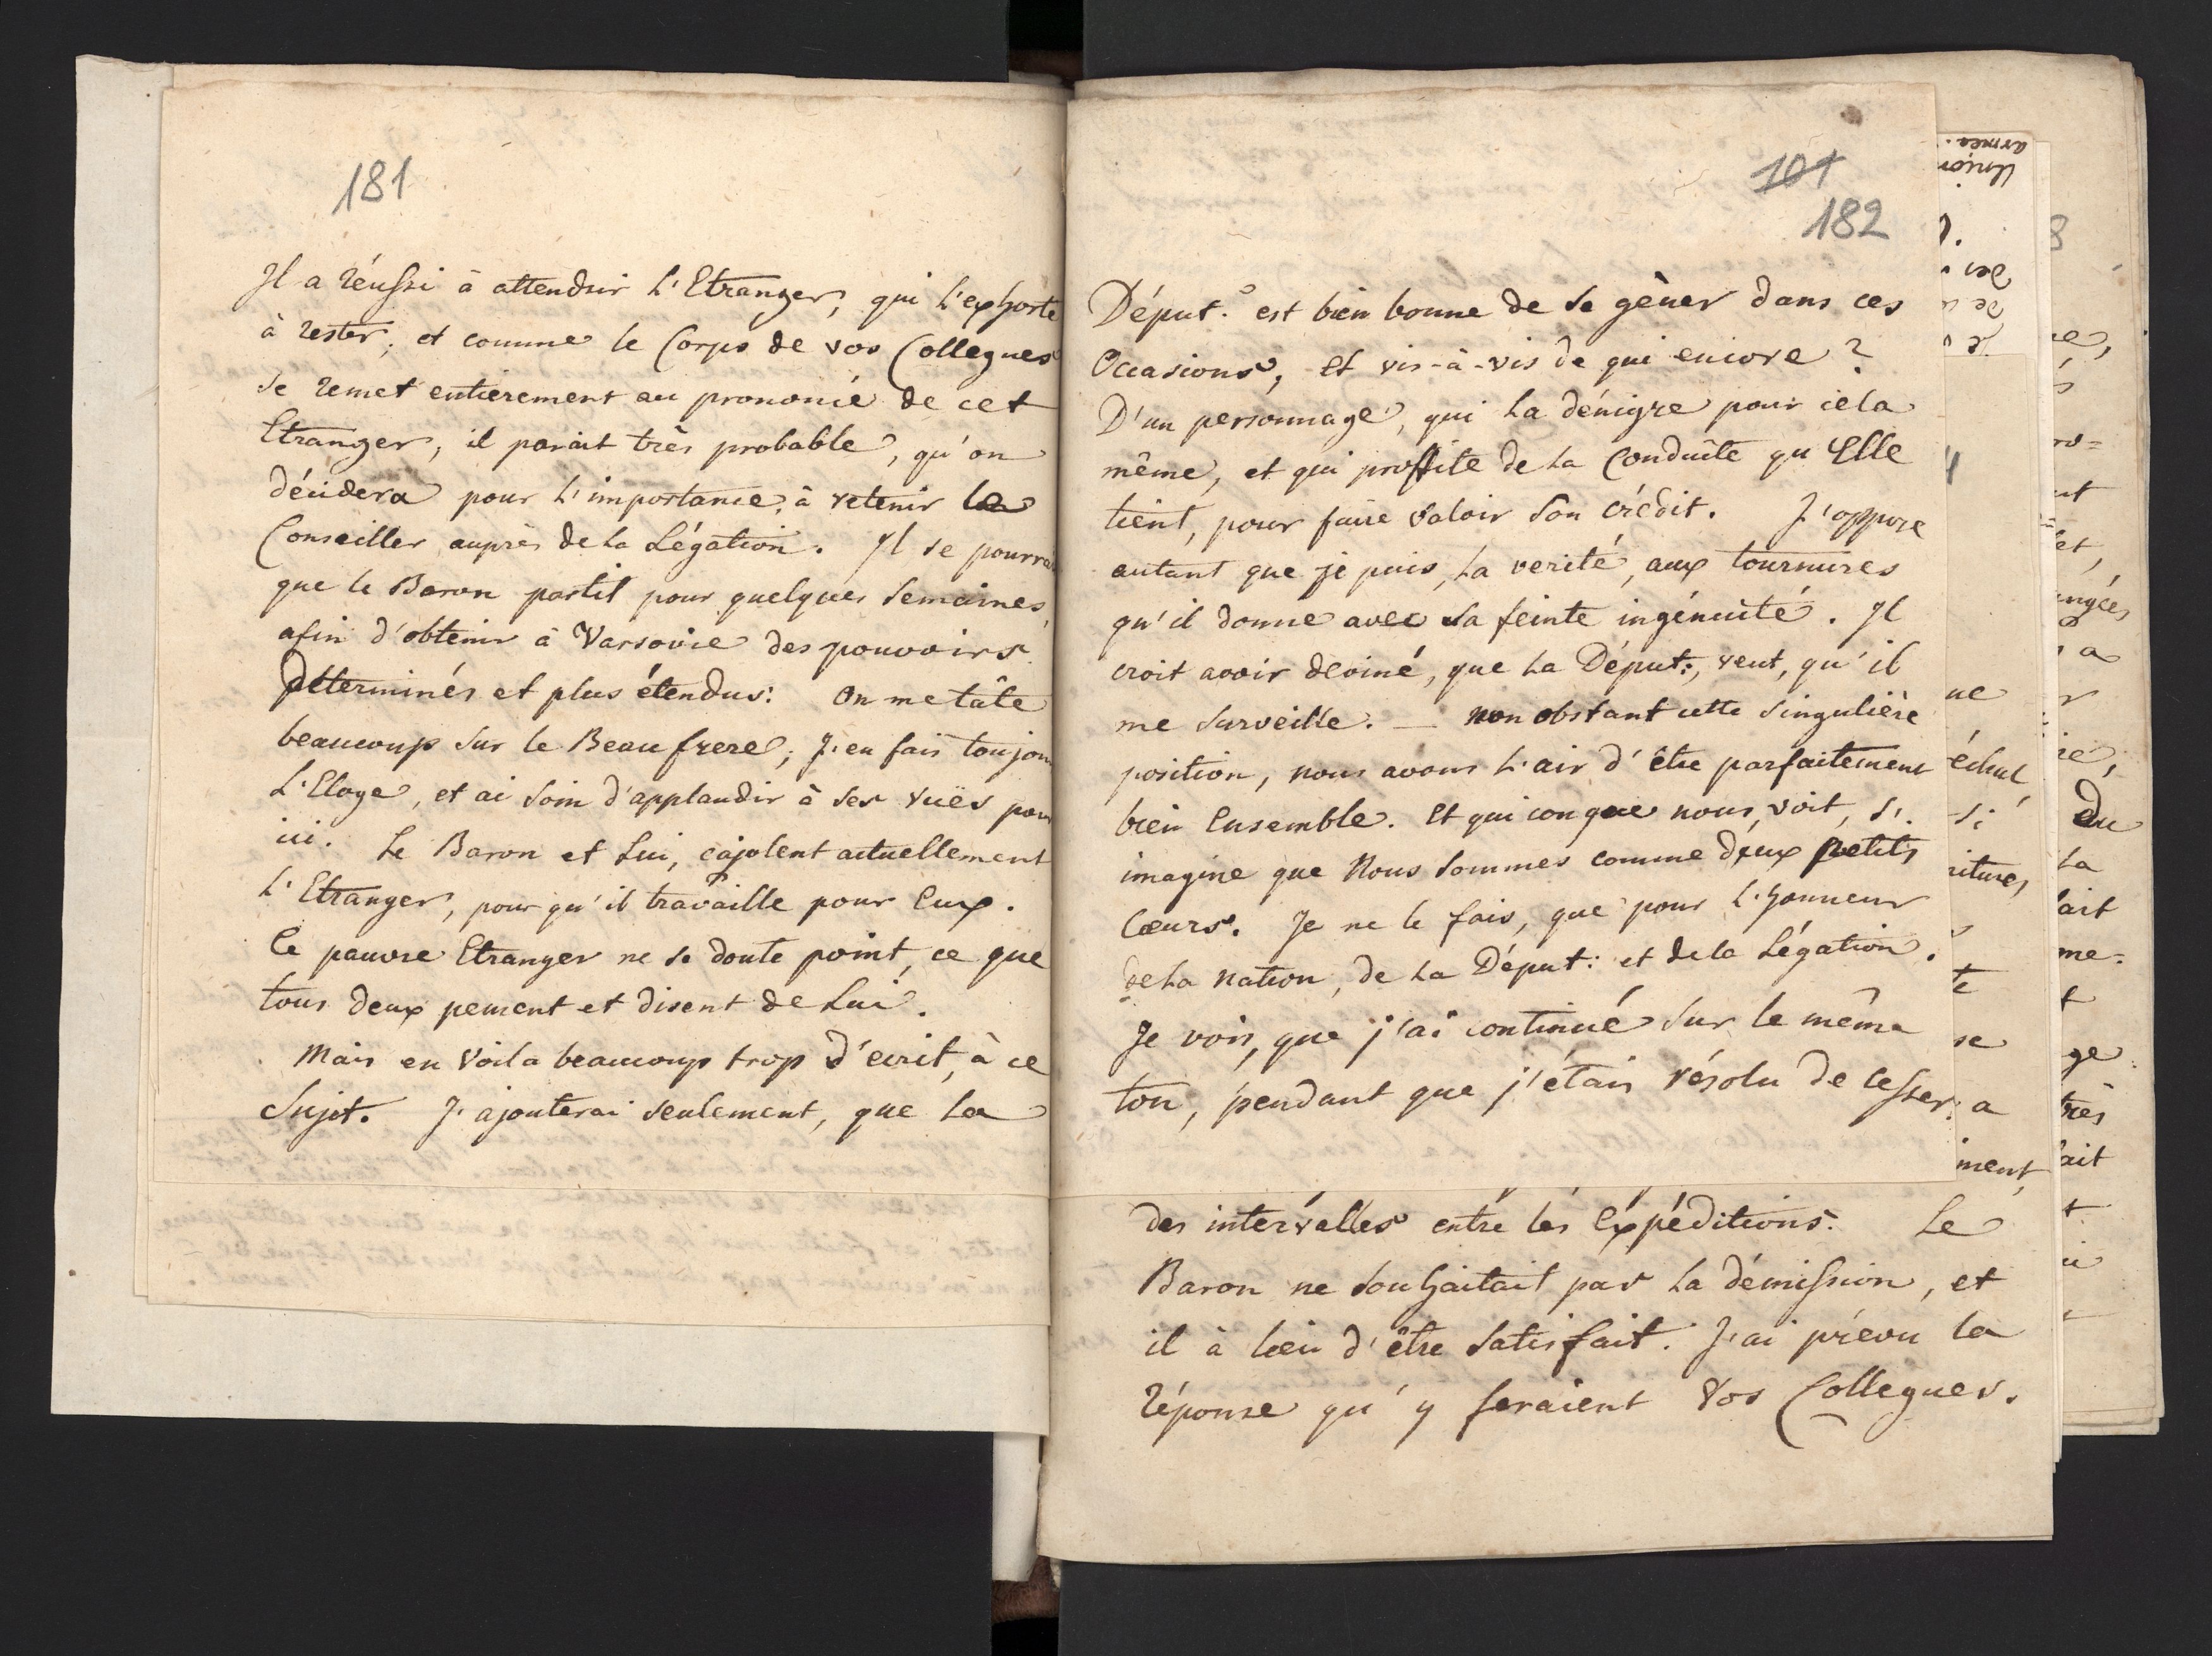 181
Il a réussi à attendrir l'Etranger, qui l'exhorte
à rester; et comme le Corps de vos Collegues
se remet entièrement au prononcé de cet
Etranger, il parait très probable, qu'on
décidera pour l'importance, à retenir le
Conseiller auprès de la Légation. Il se pourra
que le Baron partit pour quelques semaines
afin d'obtenir à Varsovie des pouvoirs
détterminés et plus étendus: On me tâte
beaucoup sur le Beaufrere; J'en fais toujou
l'Eloge, et ai soin d'applaudir à ses vuës pour
ici. Le Baron et Lui, cajolent actuellement
l'Etranger, pour qu'il travaille pour Eux.
Ce pauvre Etranger ne se doute point, ce que
tous deux pensent et disent de Lui.
Mais en voila beaucoup trop d'ecrit, à ce
Sujet. J'ajouterai seulement, que La
101
182
Députº. est bien bonne de se gèner dans ces
Occasions, Et vis-à-vis de qui encore?
D'un personnage, qui La dénigre pour cela
même, et qui proffite de la Conduite qu'Elle
tient, pour faire valoir son crédit. J'oppose
autant que je puis, la verité, aux tournures
qu'il donne avec sa feinte ingénuité. Il
croit avoir deviné, que La Déput:, veut, qu'il
me surveille. — Non obstant cette singulière
position, nous avons l'air d'être parfaitement
bien Ensemble. Et quiconque nous voit, s'.
imagine que Nous sommes comme deux petits
Cœurs. Je ne le fais, que pour l'honneur
de La Nation, de La Déput: et de la Légation.
Je vois, que j'ai continué sur le même
ton, pendant que j'étais résolu de cesser.
des intervalles entre les Expéditions. Le
Baron ne souhaitait pas La démission, et
il à lieu d'être satisfait. J'ai prévu la
réponse qu'y feraient Vos Collegues.
armée.
Union
ue
échut
si
ritures,
te
se
a
ment,
8
ut
du
La
fait
me-
t
ge
très
fait
t